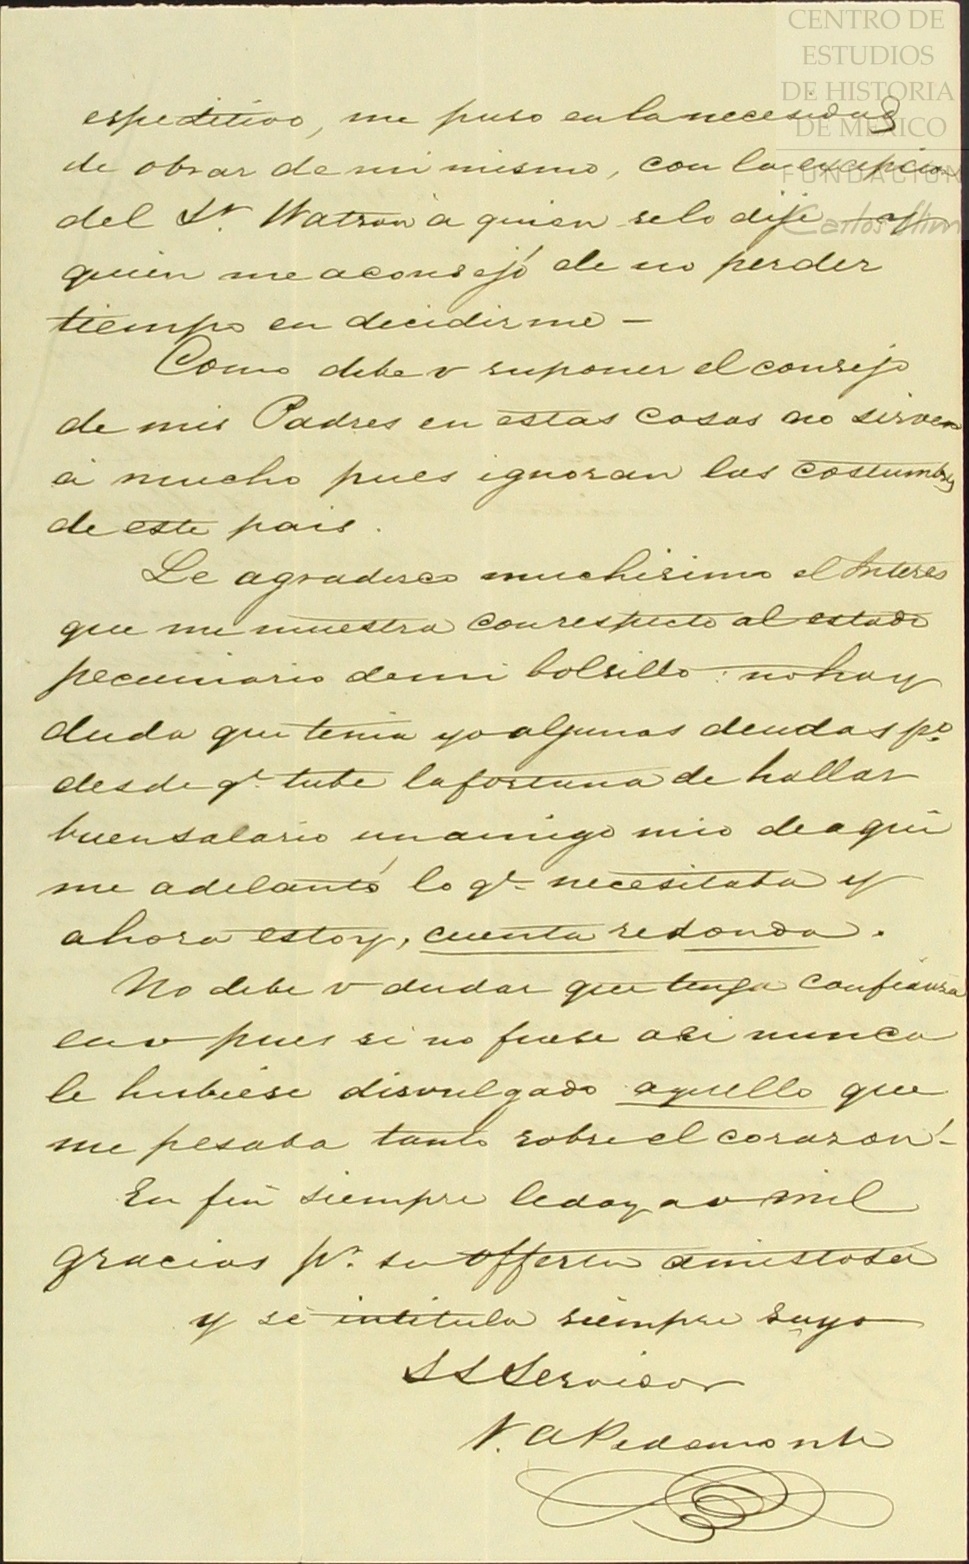 CENTRO DE
ESTUDIOS
DE HISTORIA
DE MÉXICO
FUNDACIÓN
Carlos Slim
espeditivo, me puso en la necesidad
de obrar de mi mismo, con la excepcion
del Sr. Watson a quien se lo dije y
quien me aconsejó de no perder
tiempo en decidirme —
Como debe v suponer el consejo
de mis Padres en estas cosas no sirven
á mucho pues ignoran las costumbres
de este pais.
Le agradesco muchisimo el Interes
que me muestra con respecto al estado
pecuniario de mi bolsillo: no hay
duda que tenia yo algunas deudas po.
desde qe. tube la fortuna de hallar
buen salario un amigo mio de aqui
me adelantó lo qe. necesitaba y
ahora estoy, cuenta redonda.
No debe v dudar que tenga confianza
en v pues si no fuese asi nunca
le hubiese disvulgado aquello que
me pesaba tanto sobre el corazon! —
En fin siempre le doy a v mil
gracias pr. su offerta amistosa
y se intitula siempre suyo
S S Servidor
N. A Pedemonte